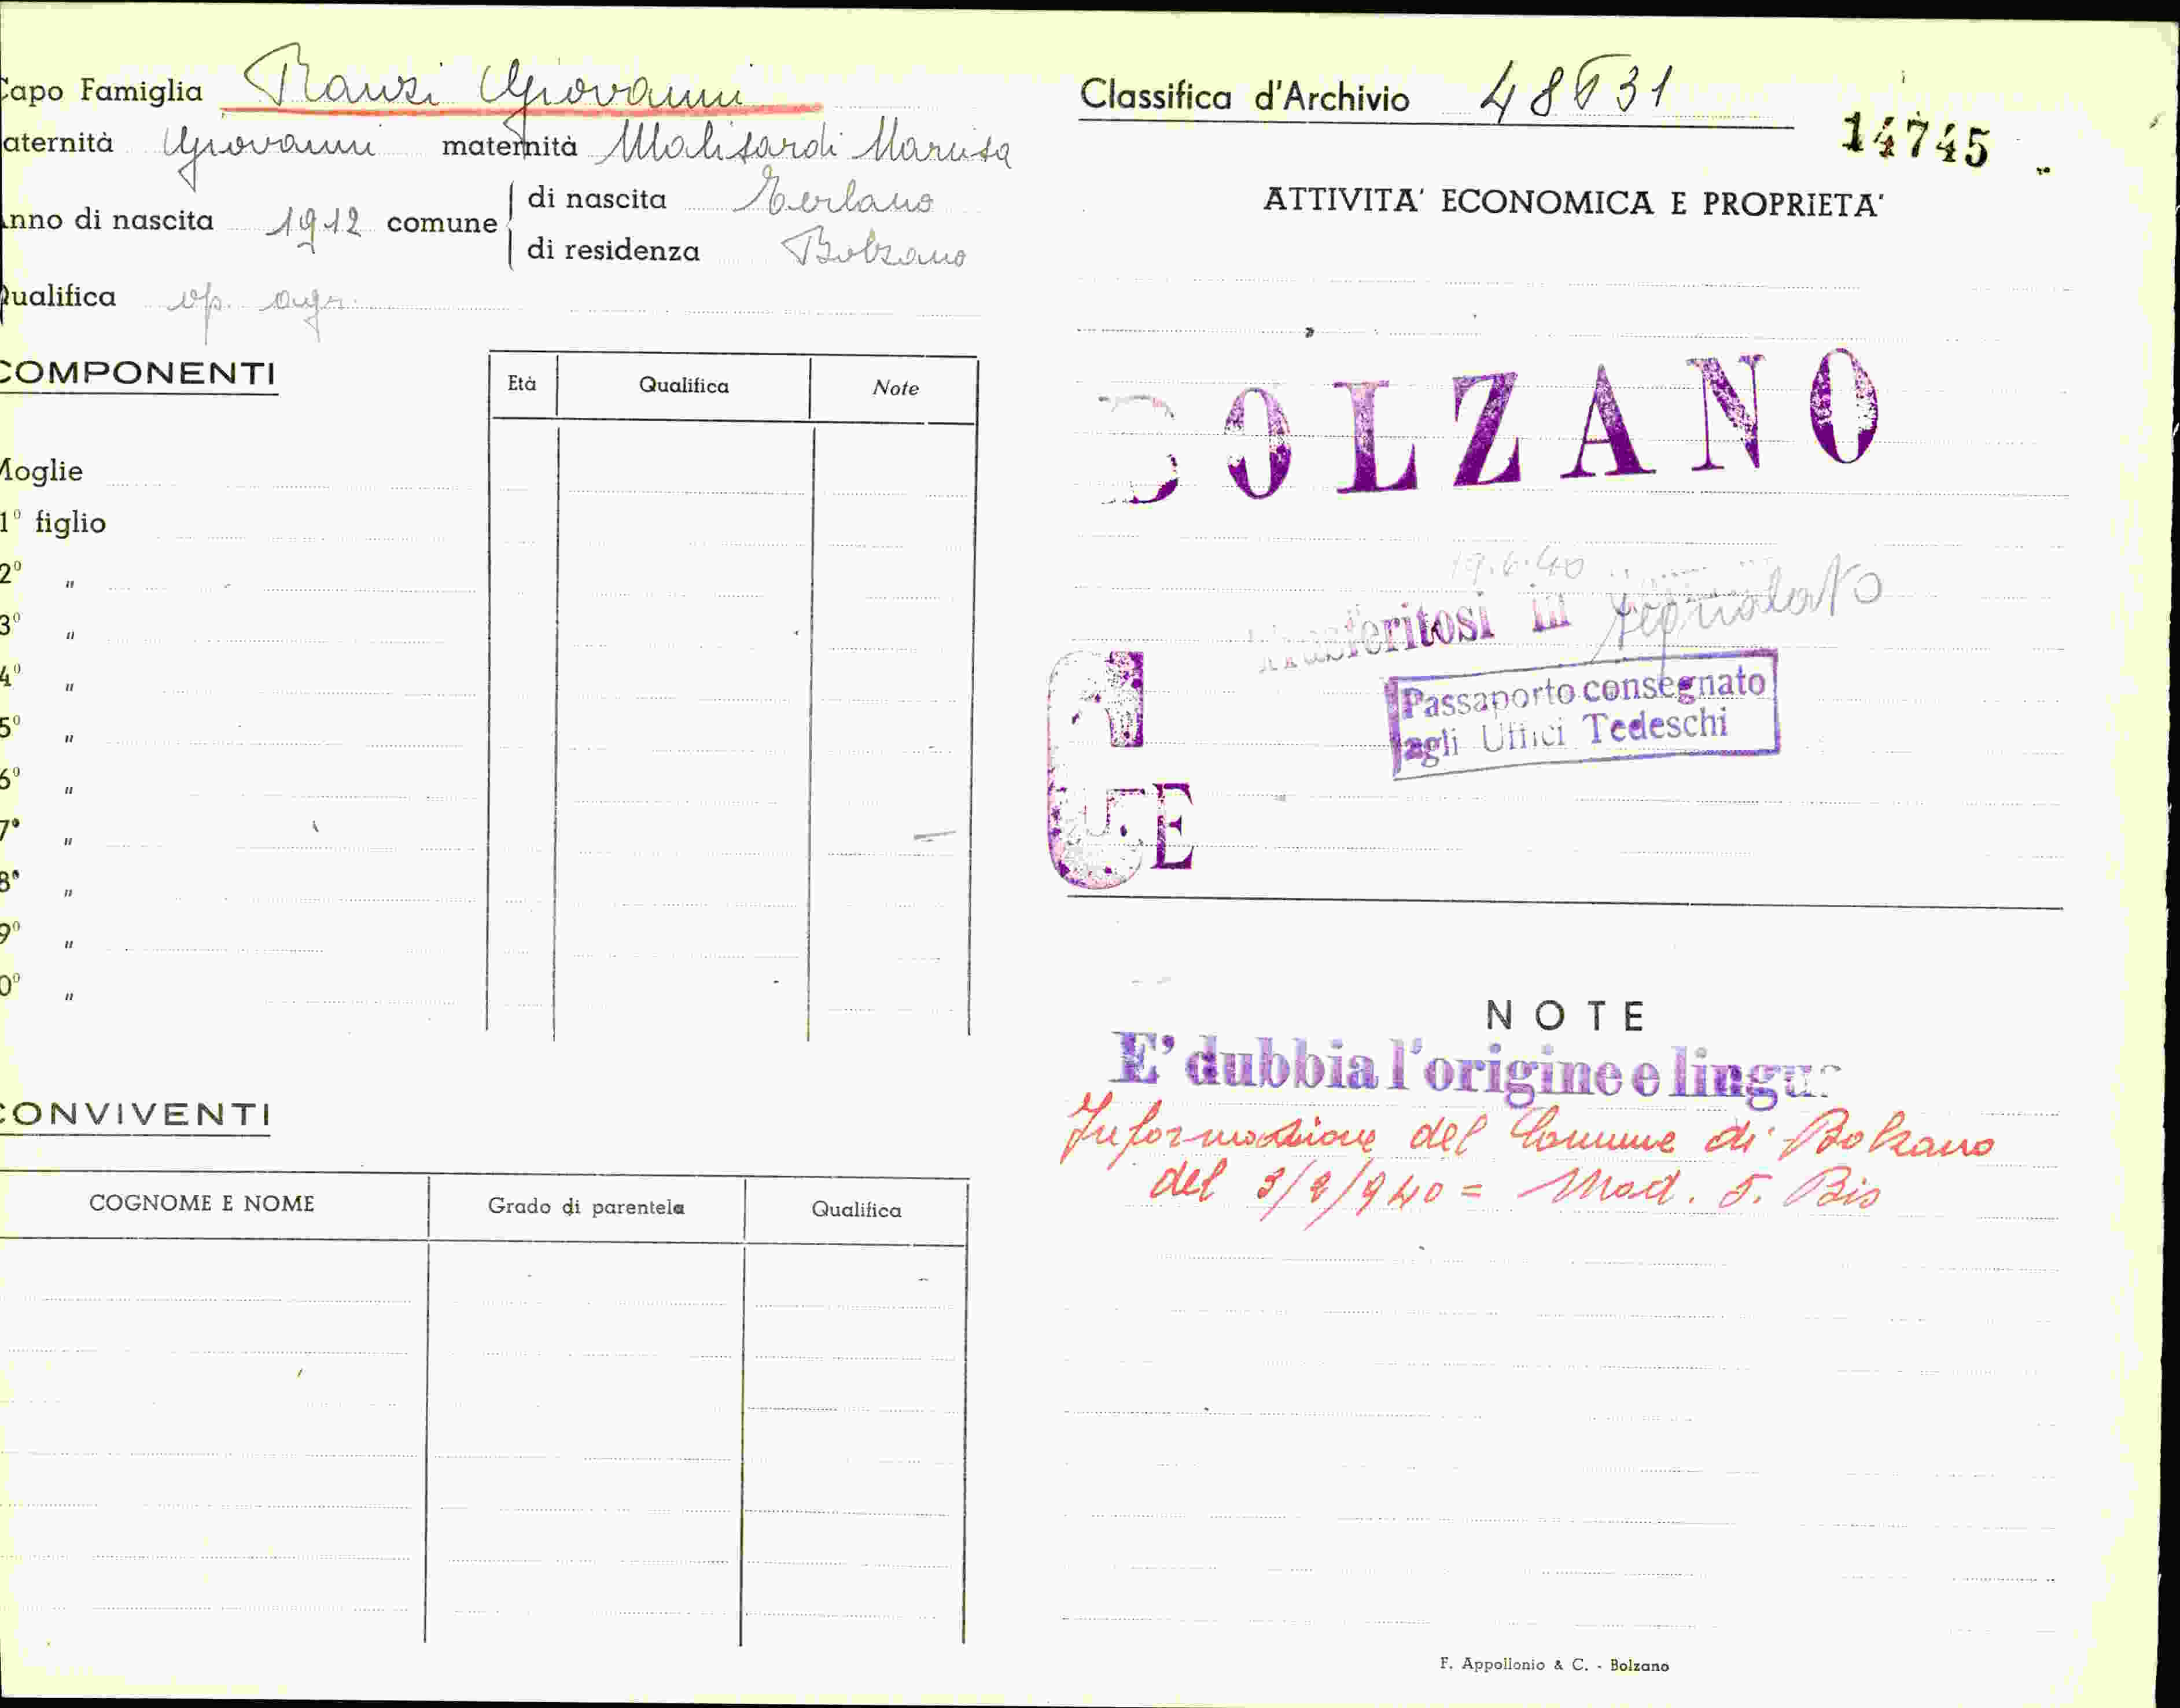 Capo Famiglia Ranzi Giovanni
aternità Giovanni maternità Malisardi Marisa
Anno di nascita 1912 comune
di nascita Terlano
di residenza Bolzano
Qualifica op. agr.
COMPONENTI
Età Qualifica Note
Moglie
1º figlio
2º "
3º "
4º "
5º "
6º "
7º "
8º "
9º "
0º "
CONVIVENTI
COGNOME E NOME Grado di parentela Qualifica
Classifica d'Archivio
14745
ATTIVITA' ECONOMICA E PROPRIETA'
BOLZANO
19.6.40
Trasferitosi in
Passaporto consegnato
agli Uffici Tedeschi
E
NOTE
E' dubbia l'origine e lingua
Informazione del Comune di Bolzano
del 3/2/940 = Mod. 5. Bis
F. Appollonio & C. - Bolzano